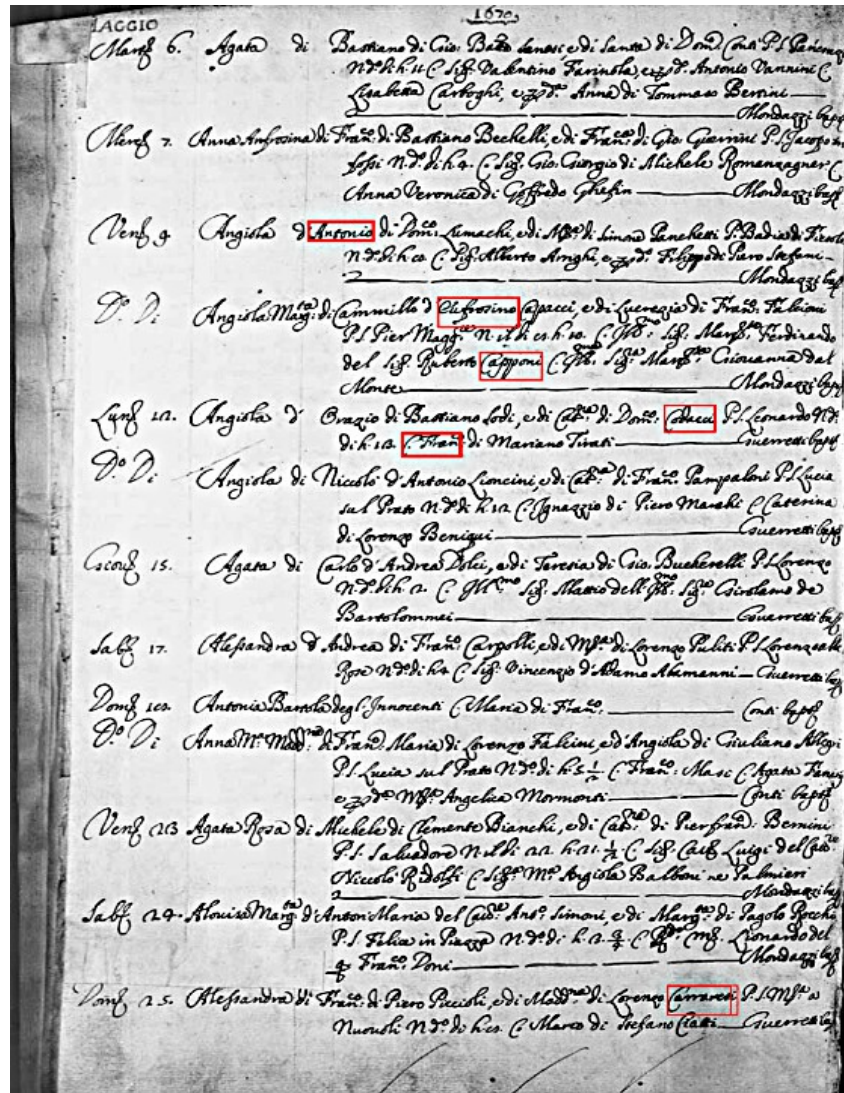 MAGGIO 1670
Mart. 6. Agata di Bastiano di Gio: Batt.a Sanesi e di Santa di Dom.co Conti P. S. Pancrazio
N. d.o di h. 11 C. Sig. Valentino Farinola, e
Antonio Vannini C.
Lisabetta Carboghi, e
Anna di Tommaso Bertini
Mondazzi bapt.
Merc. 7. Anna Anfrosina di Fran.o di Bastiano Bechelli, e di Fran.ca di Gio: Guerrini P. S. Jacopo tra
fossi N. d.o di h. 4. C. Sig. Gio: Giorgio di Michele C.
Anna Veronica di Goffredo Mondazzi bapt.
Ven. 9 Angiola d'Antonio di Dom.co Lumachi, e di M.a di Simone Panchetti P. Badia di Fiesole
N. d.o di h. C. Sig. Alberto Arrighi, e
Filippo di Piero Stefani
Mondazzi bapt.
D.o Di Angiola Marg.ta di Cammillo d'Eufrosino Capacci, e di Lucrezia di Fran.o Falcioni
P. S. Pier Magg.re N. il di h. 10. C. Sig. March. Ferdinando
del Sig. Ruberto Capponi C. Sig.ra March. Giovanna dal
Monte Mondazzi bapt.
Lun. 12. Angiola d'Orazio di Bastiano Lodi, e di Cat.na di Dom.co Codacci P. S. Leonardo N. d.o
di h. 13. C. Fran.o di Mariano Tirati Guerretti bapt.
D.o Di Angiola di Niccolò d'Antonio Lioncini, e di Cat.na di Fran.o Pampaloni P. S. Lucia
sul Prato N. d.o di h. 12 C. Ignazzio di Piero C. Caterina
di Lorenzo Guerretti bapt.
Giov. 15. Agata di Carlo d'Andrea Dolci, e di Taresia di Gio: Bucherelli P. S. Lorenzo
N. d.o di h. 2. C. Sig. Mattio dell Sig. Girolamo de
Bartolommei Guerretti bapt.
Sab. 17. Alessandra d'Andrea di Fran.o e di M.a di Lorenzo Puliti P. S. Lorenzo alle
Rose N. d.o di h. 4 C. Sig. Vincenzio d'Adamo Alamanni Guerretti bapt.
Dom. 18. Antonia Bartola degl'Innocenti C. Maria di Fran.o Conti bapt.
D.o Di Anna M.a Madd.na di Fran.o Maria di Lorenzo Falcini, e d'Angiola di Giuliano Allegri
P. S. Lucia sul Prato N. d.o di h. 5 1/2 C. Fran.o Masi C. Agata
Angelica Mormorai Conti bapt.
Ven. 23 Agata Rosa di Michele di Clemente Bianchi, e di Cat.na di Pierfran.o Bernini
P. S. Salvadore N. il di 22. h. 21. 1/2 C. Sig. Cav. Luigi del Cav.
Niccolò Ridolfi C. Sig.ra M.a Angiola Balboni ne Palmieri
Mondazzi bapt.
Sab. 24. Alouisa Marg.ta d'Anton Maria del Cav. Ant.o Simoni, e di Marg.ta di Pagolo Rocchi
P. S. Felice in Piazza N. d.o di h. 2. 3/4 C. Lionardo del
Fran.o Doni Mondazzi bapt.
Dom. 25. Alessandra di Fran.o di Piero Piccioli, e di Madd.na di Lorenzo Carrareti P. S. M.a a
Nuovoli N. d.o di h. C. Marco di Stefano Ciatti Guerretti bapt.